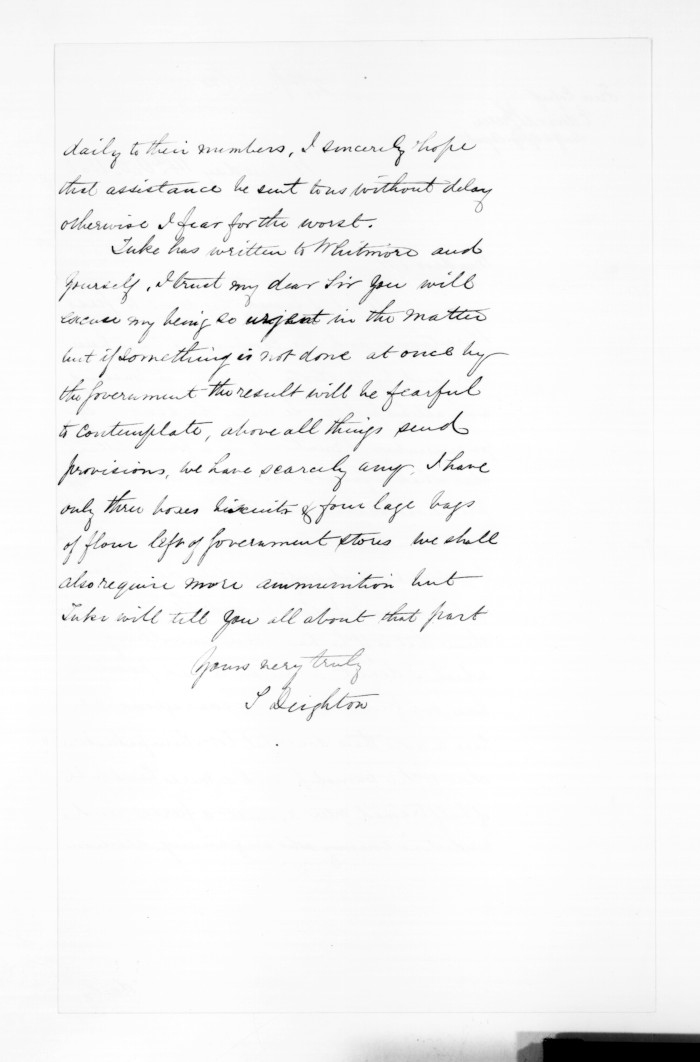 daily to their numbers, I sincerely hope
that assistance be sent to us without delay
otherwise I fear for the worst.
Tuke has written to Whitmore and
Yourself, I trust my dear Sir you will
excuse my being so urgent in the matter
but if something is not done at once by
the Government the result will be fearful
to contemplate, above all things send
provisions, we have scarcely any. I have
only three boxes biscuits & four lage bags
of flour left of Government stores we shall
also require more ammunition but
Tuke will tell you all about that part
Yours very truly
S Deighton